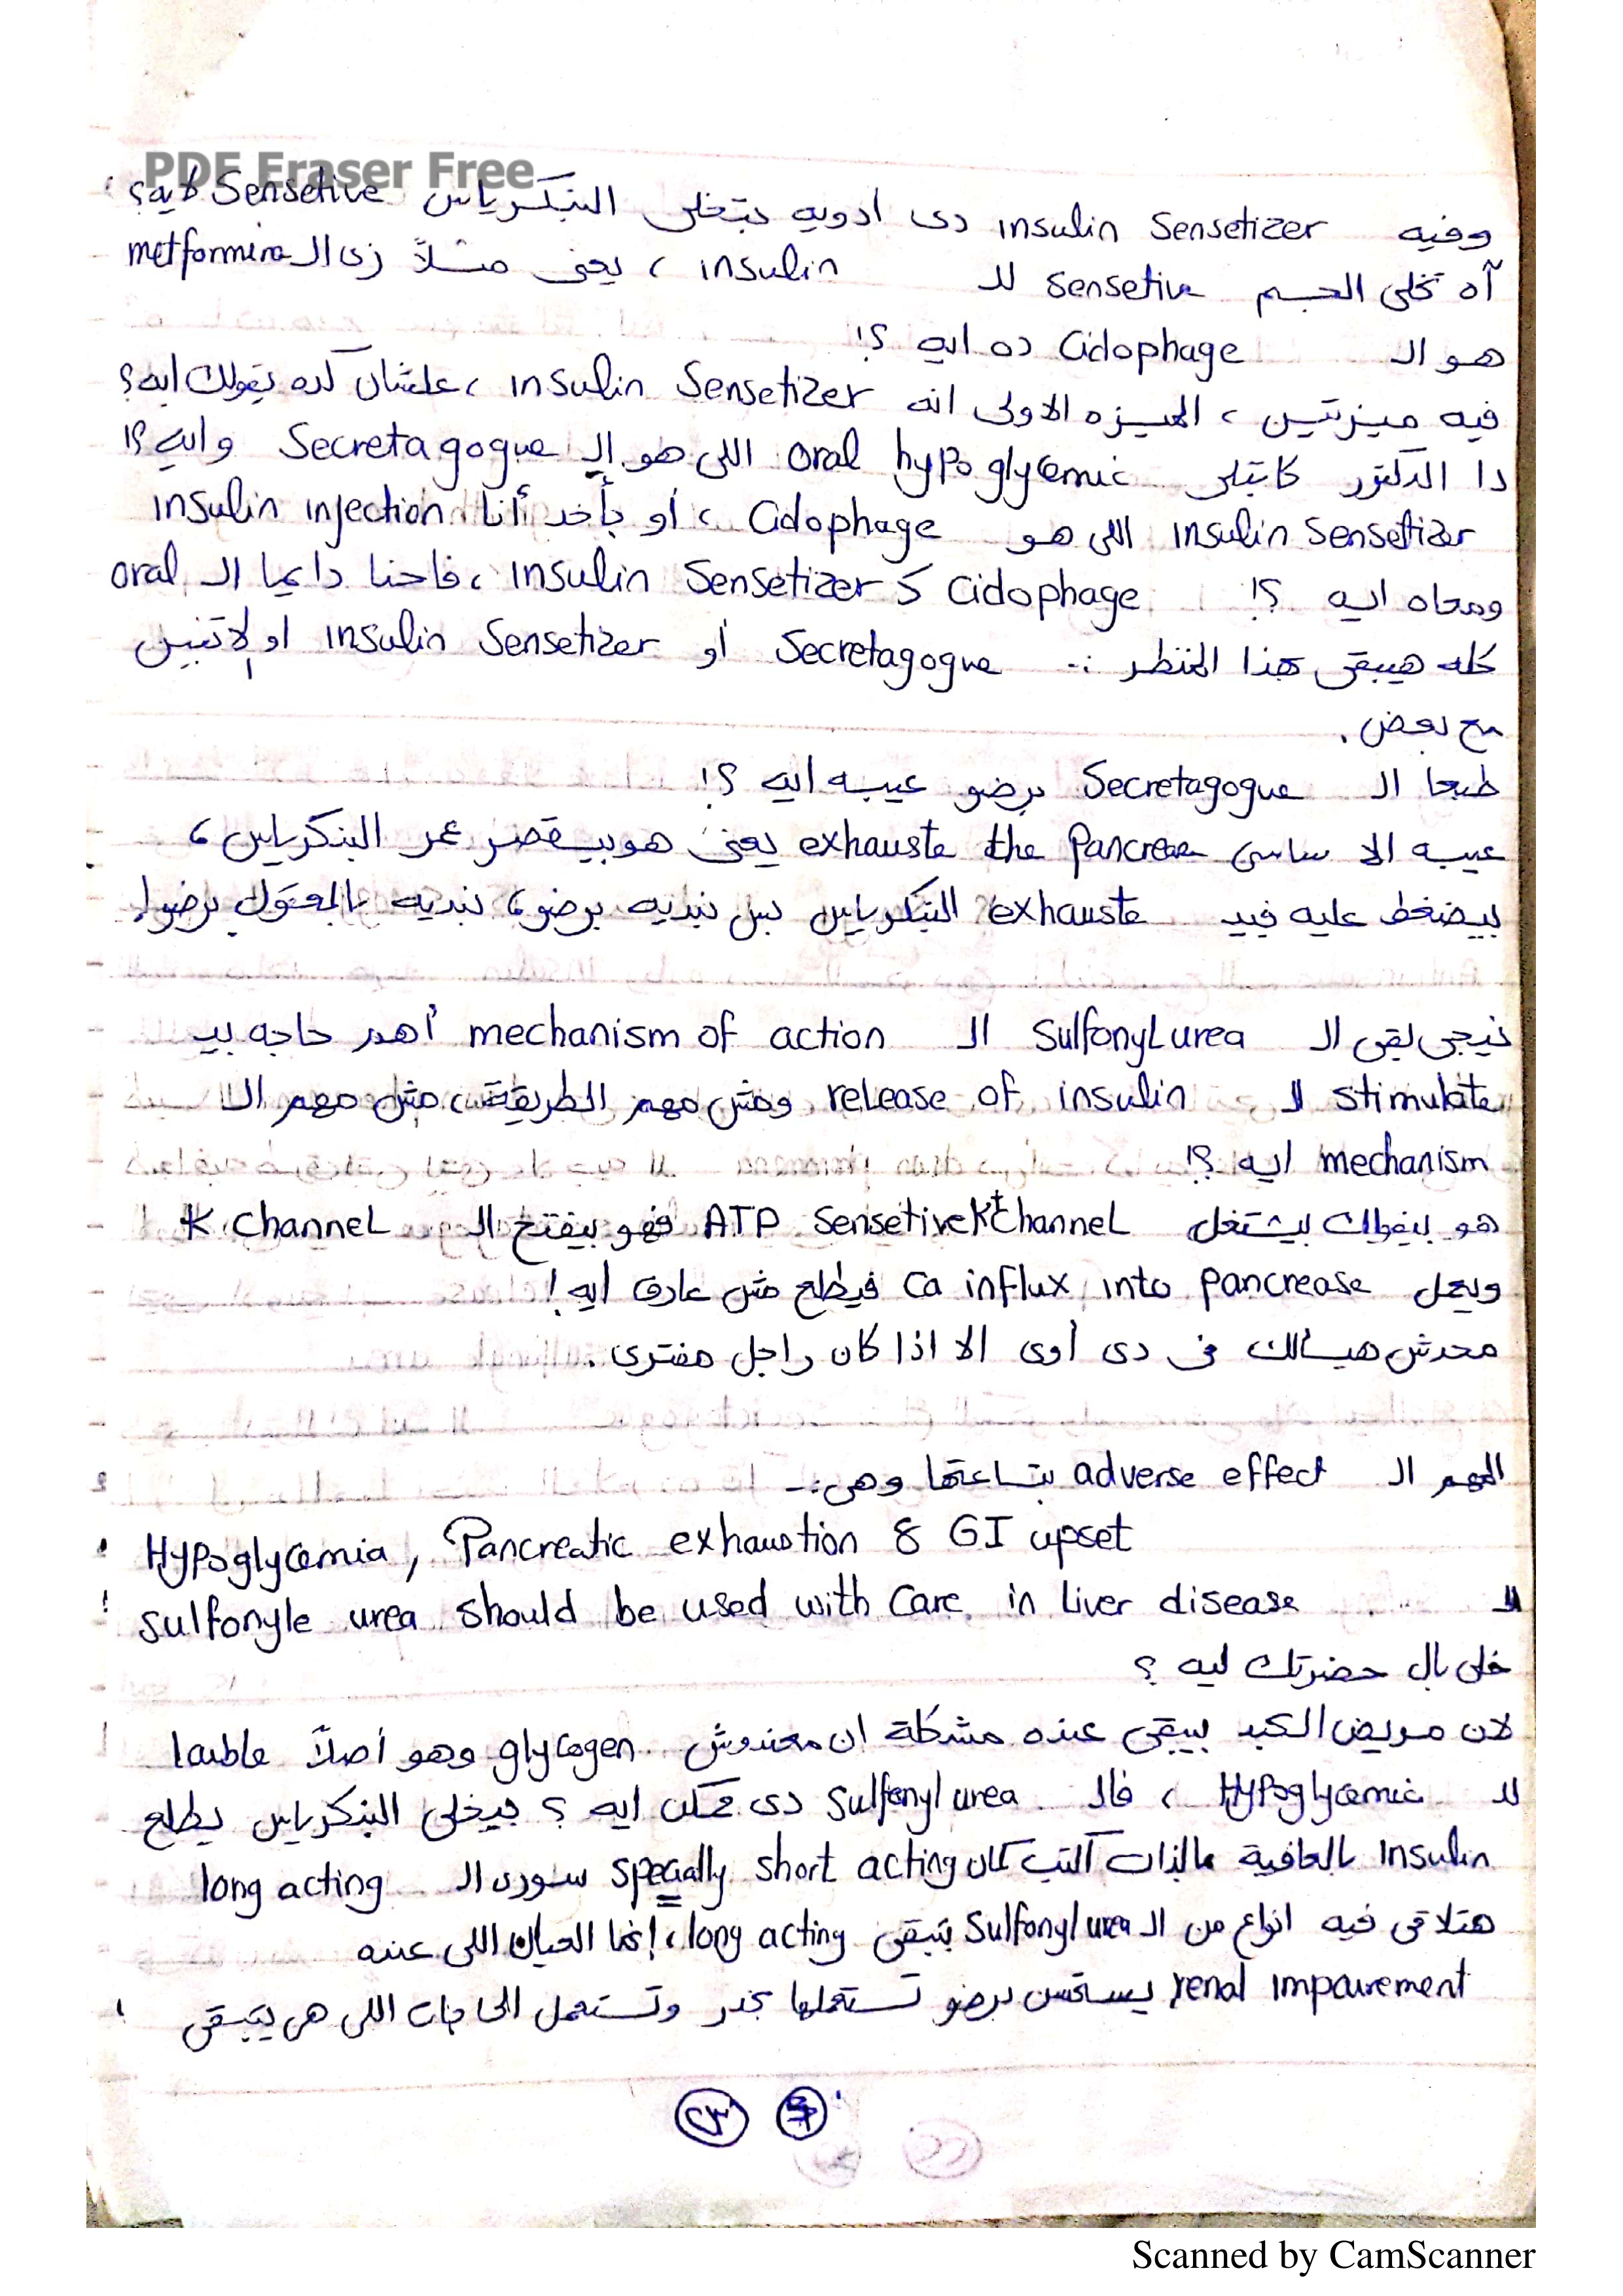 PDF Eraser Free
وفيه insulin Sensetizer دى ادويه بتخلى البنكرياس Sensetive لايه؟
آه تخلى الجسم Sensetive للـ insulin ، يعنى مثلاً زى الـ metformine
هو الـ Cidophage ده ايه ؟!
فيه ميزتين ، الميزه الاولى انه insulin Sensetizer ، علشان كده يقولك ايه؟
دا الدكتور كاتبلى oral hypoglycemic اللى هو الـ Secretagogue وايه؟!
insulin Sensetizer اللى هو Cidophage ، أو بأخد أنا insulin injection
ومعاه ايه ؟! Cidophage كـ insulin Sensetizer ، فاحنا دايما الـ oral
كله هيبقى بهذا المنظر :- Secretagogue أو insulin Sensetizer او الاتنين
مع بعض .
طبعا الـ Secretagogue برضو عيبه ايه ؟!
عيبه الاساسى exhauste the Pancreas يعنى هو بيقصر عمر البنكرياس ،
بيضغط عليه فبيـ exhauste البنكرياس بس نبديه برضو ، نبديه بالمعقول برضو !
نيجى لقى الـ SulfonyLurea الـ mechanism of action أهم حاجه بيـ
stimulate الـ release of insulin ومش مهم الطريقة ، مش مهم الـ
mechanism ايه ؟!
هو بيقولك بيشتغل ATP SensetiveK+channeL فهو بيفتح الـ K channeL
ويعمل Ca influx into pancrease فيطلع مش عارف ايه !
محدش هيسألك فى دى أوى الا اذا كان راجل مفترى .
المهم الـ adverse effect بتاعتها وهى :-
Hypoglycemia, Pancreatic exhaustion & GI upset
الـ sulfonyle urea should be used with Care in Liver disease
خلى بال حضرتك ليه ؟
لان مريض الكبد بيبقى عنده مشكلة ان معندوش glycogen وهو أصلاً laible
للـ Hypoglycemic ، فالـ Sulfonyl urea دى ممكن ايه ؟ بيخلى البنكرياس يطلع
Insulin بالعافية بالذات اكتب كمان specially short acting سورى الـ long acting
هتلاقى فيه انواع من الـ Sulfonyl urea بتبقى long acting ، إنما العيان اللى عنده
renal impairement يستحسن برضو تستعملها بحذر وتستعمل الحاجات اللى هى بتبقى
٢٣
Scanned by CamScanner